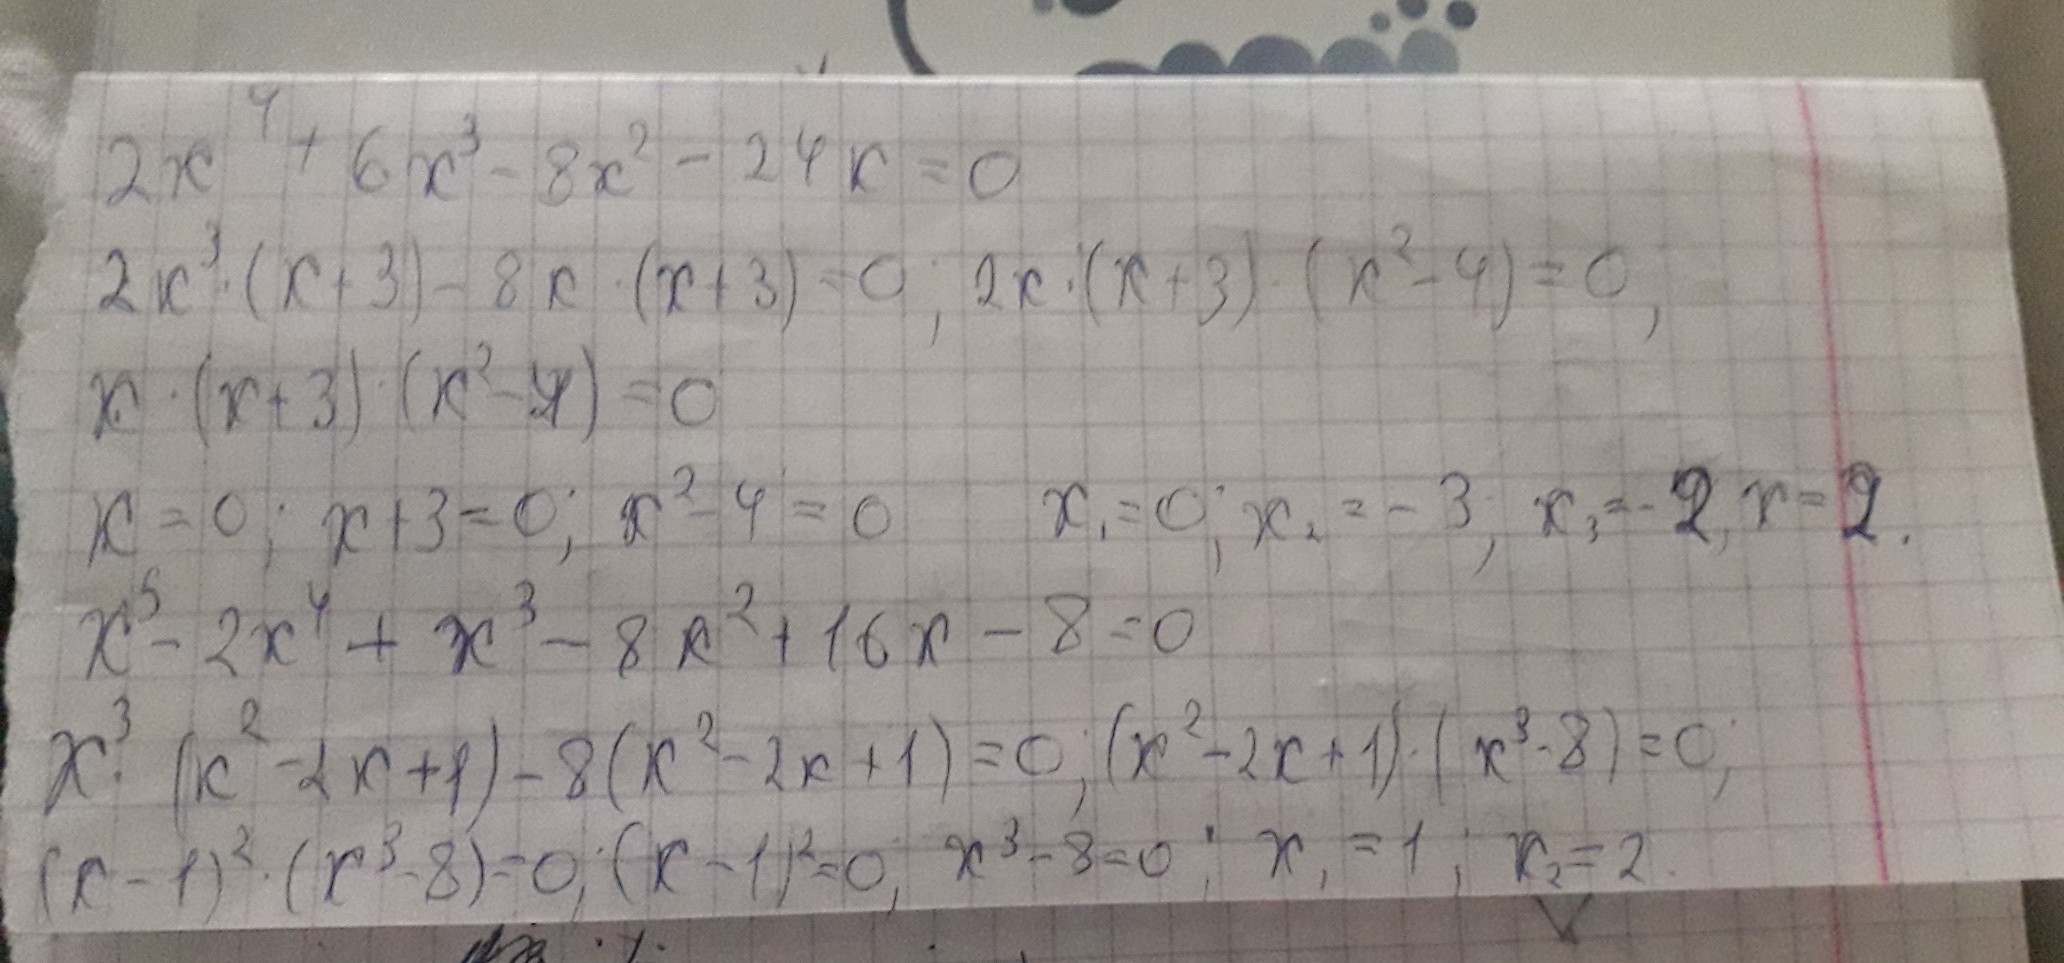 2x⁴ + 6x³ - 8x² - 24x = 0
2x³·(x+3) - 8x·(x+3) = 0; 2x·(x+3)·(x²-4) = 0,
x·(x+3)·(x²-4) = 0
x = 0; x+3 = 0; x²-4 = 0 x₁ = 0; x₂ = -3; x₃ = -2, x = 2.
x⁵ - 2x⁴ + x³ - 8x² + 16x - 8 = 0
x³·(x²-2x+1) - 8(x²-2x+1) = 0; (x²-2x+1)·(x³-8) = 0;
(x-1)²·(x³-8) = 0; (x-1)² = 0; x³-8 = 0; x₁ = 1; x₂ = 2.